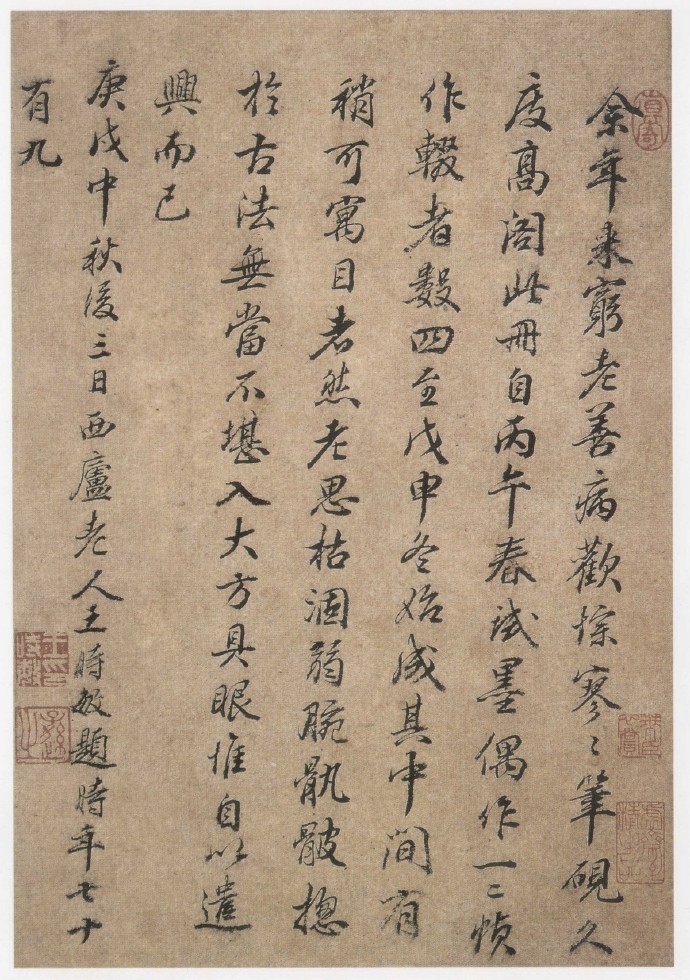 余年来窮老善病歡悰寥〻筆硯久
庋高阁此冊自丙午春試墨偶作一二幀
作輟者數四至戊申冬始成其中間有
稍可寓目者然老思枯涸弱腕骩骳揔
於古法無當不堪入大方具眼惟自以遣
興而已
庚戌中秋後三日西廬老人王時敏題時年七十
有九